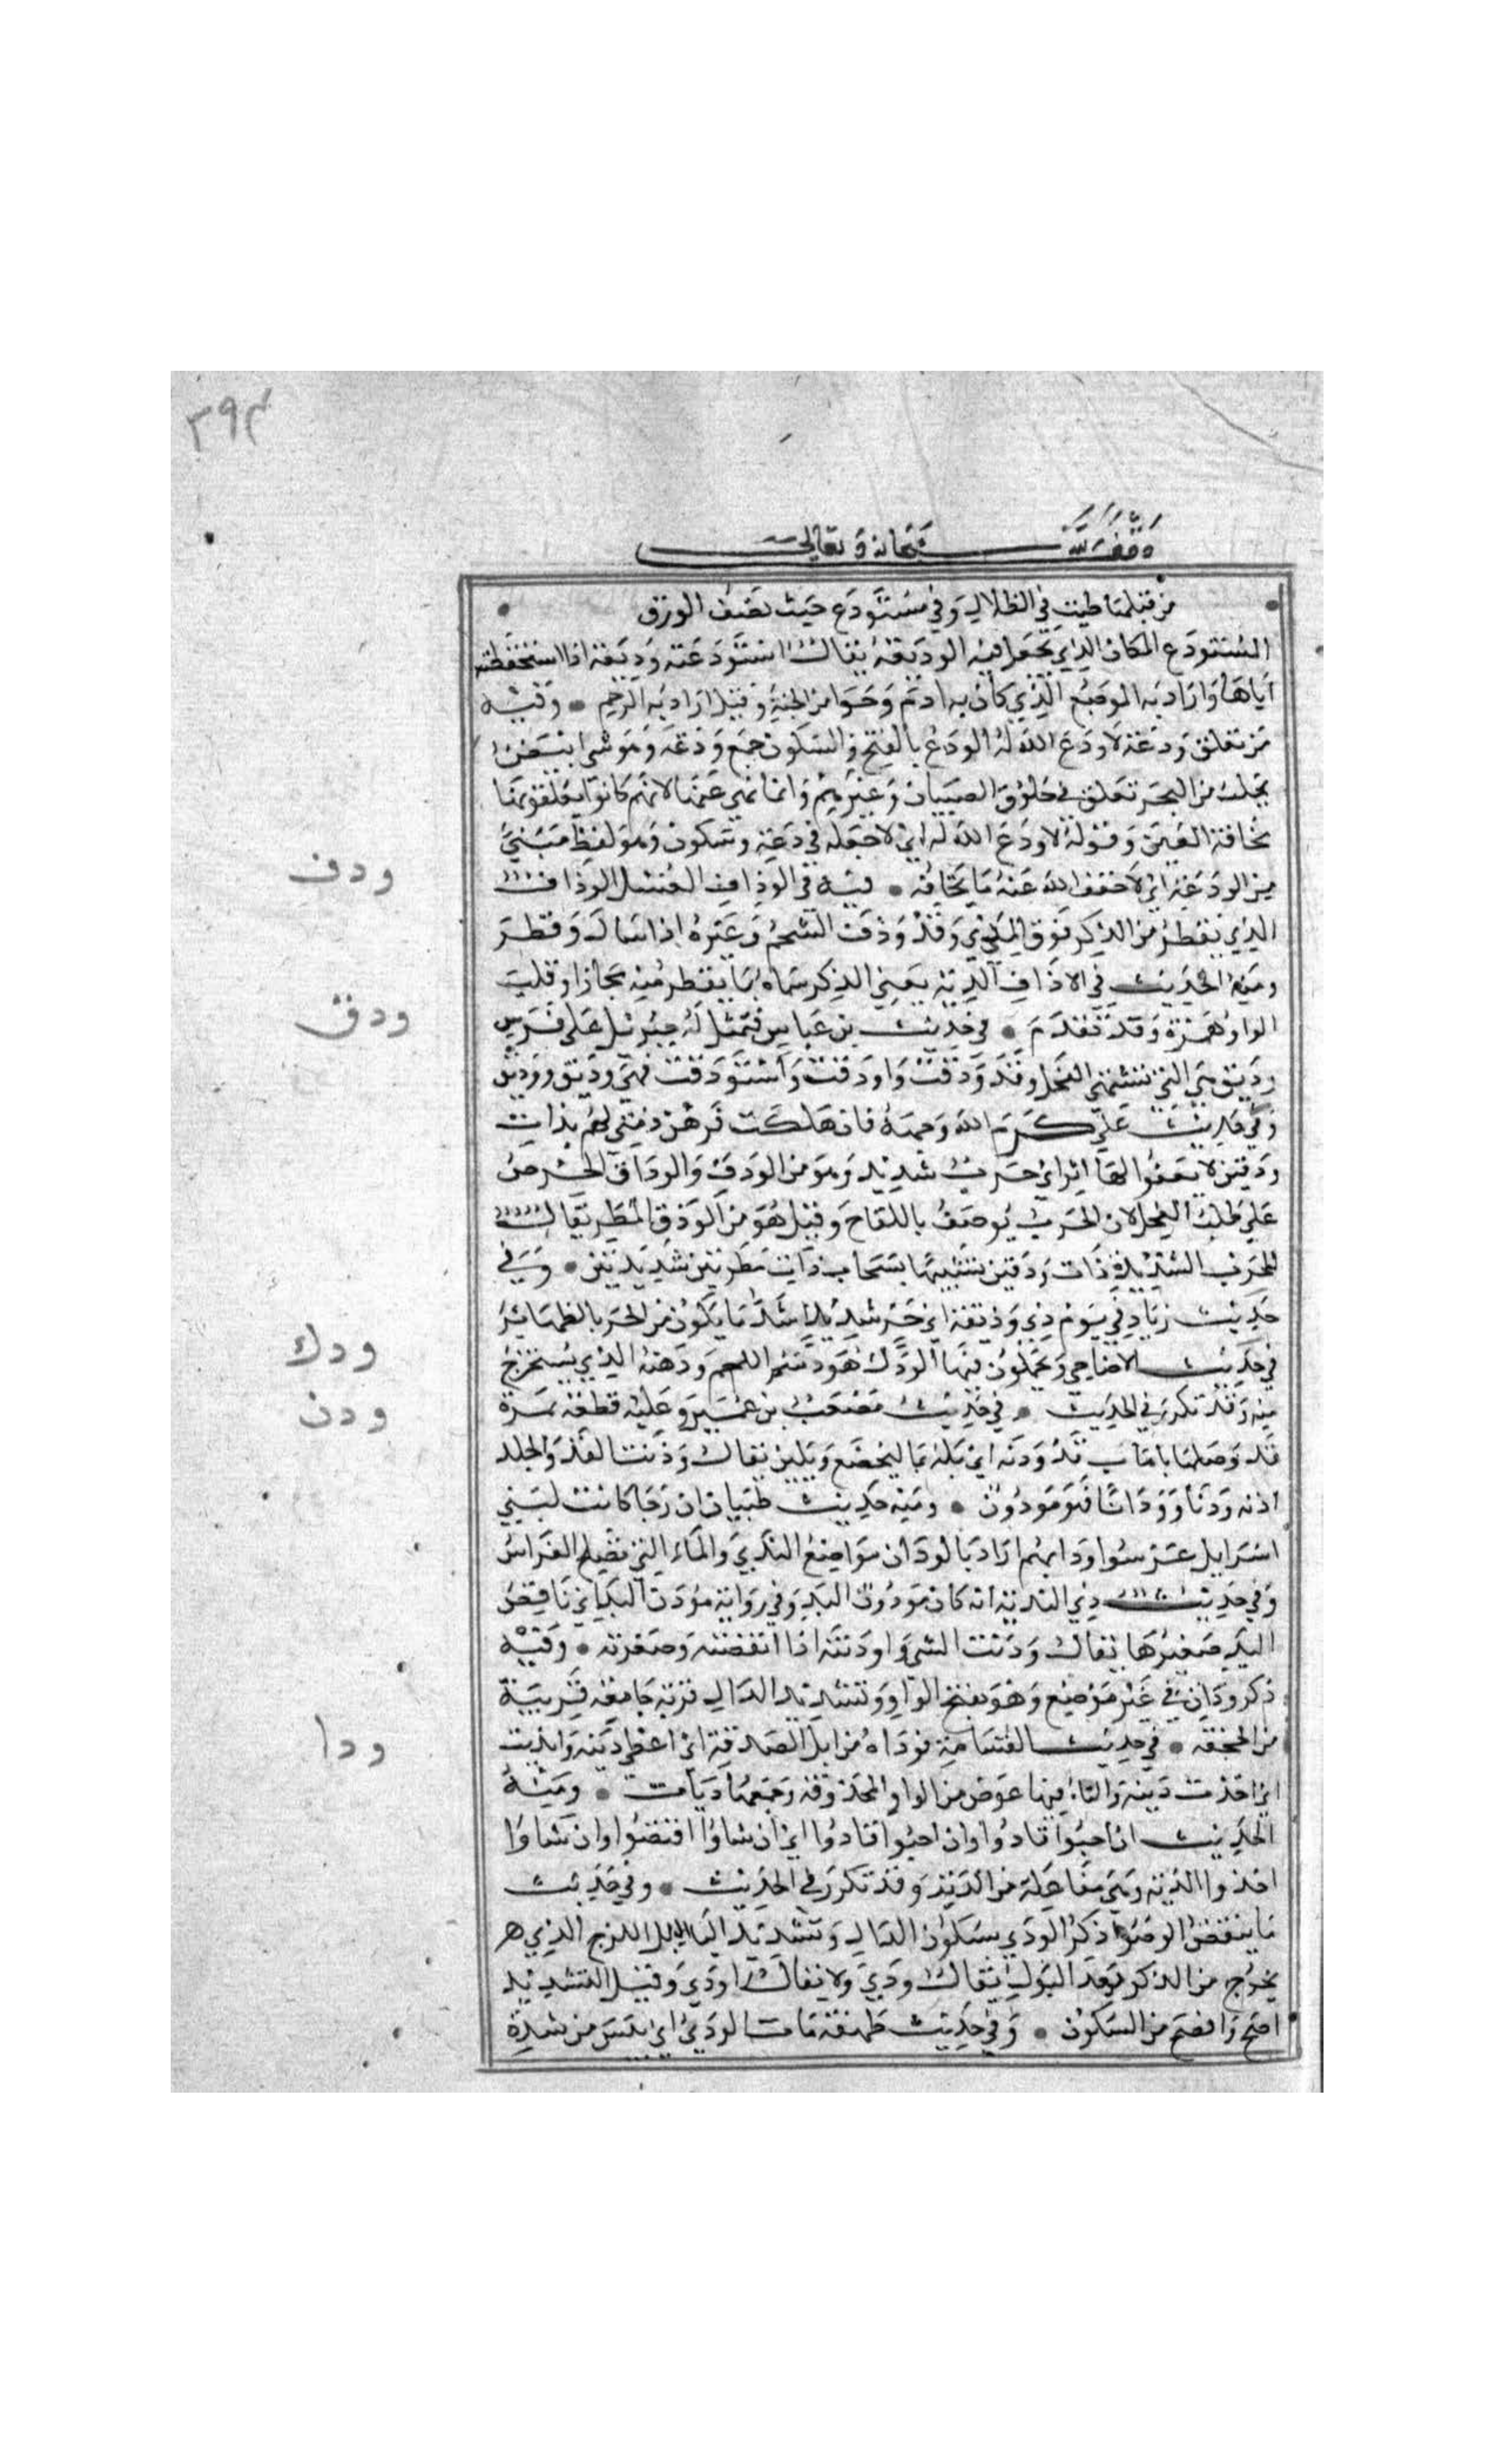 ٣٩٣
وقف لله سبحانه وتعالى
من قبلها طبت في الظلال وفي مستودع حيث تخصف الورق
المستودع المكان الذي تجعل فيه الوديعة يقال استودعته وديعة اذا استحفظته
اياها وارادبه الموضع الذي كان به ادم وحوا من الجنة وقيل اراد به الرحم • وفيه
من تعلق ودعة لا ودع الله له الودع بالفتح والسكون جمع ودعة وهو شي ابيض
يجلب من البحر تعلق في حلوق الصبيان وغيرهم وانما نهي عنها لانهم كانوا يعلقونها
مخافة العين وقوله لا ودع الله له اي لا جعله في دعة وسكون وهو لفظ مبني
من الودعة اي لا خفف الله عنه ما يخافه • فيه في الوداف الغسل الوداف
الذي يقطر من الذكر فوق المذي وقد ودف الشحم وغيره اذا سال وقطر
ودف
ومنه الحديث في الاداف الدية يعني الذكر سماه بما يقطر منه مجازا وقلبت
الواو همزة وقد تقدم • في حديث بن عباس فتمثل له جبرئيل على فرس
ودق
وديق هي التي تشتهي الفحل وقد ودقت واودقت واستودقت فهي وديق وودوق
وفي حديث علي كرم الله وجهه فان هلكت فرهن ذمتي لهم بذات
ودقين لا يعفوا لها اثر اي حرب شديد وهو من الودق والوداق الحرص
على طلب الفحل لان الحرب يوصف باللقاح وقيل هو من الودق المطر يقال
للحرب الشديدة ذات ودقين تشبيها بسحاب ذات مطرتين شديدتين • وفي
حديث زياد في يوم ذي وديقة اي حر شديد اشد ما يكون من الحر بالظهاير
في حديث الاضاحي ويحملون فيها الودك هو دسم اللحم ودهنه الذي يستخرج
ودك
منه وقد تكرر في الحديث • في حديث مصعب بن عمير وعليه قطعة نمرة
ودن
قد وصلها باهاب قد ودنه اي بله بما ليخضع ويلين يقال ودنت القد والجلد
ادنه ودنا وودانا فهو مودون • ومنه حديث ظبيان ان وجا كانت لبني
اسرايل غرسوا ودانهم اراد بالودان مواضع الندي والماء التي تصلح الغراس
وفي حديث ذي الثدية انه كان مودون اليد وفي رواية مودن اليد اي ناقص
اليد صغيرها يقال ودنت الشي واودنته اذا انقصته وصغرته • وفيه
ذكر ودان في غير موضع وهو بفتح الواو وتشديد الدال قرية جامعة قريبة
من الجحفة • في حديث القسامة فوداه من ابل الصدقة اي اعطي ديته واتديت
ودا
اي اخذت ديته والتاء فيها عوض من الواو المحذوفة وجمعها ديات • ومنه
الحديث ان احبوا قادوا وان احبوا قادوا اي ان شاوا اقتصوا وان شاوا
اخذوا الدية وهي مفاعلة من الدية وقد تكرر في الحديث • وفي حديث
ما ينقض الوضوء ذكر الودي بسكون الدال وتشديد اليا البلل اللزج الذي هر
يخرج من الذكر بعد البول يقال ودي ولا يقال اودي وقيل التشديد
اصح وافصح من السكون • وفي حديث طهفة مات الودي اي يبس من شدة